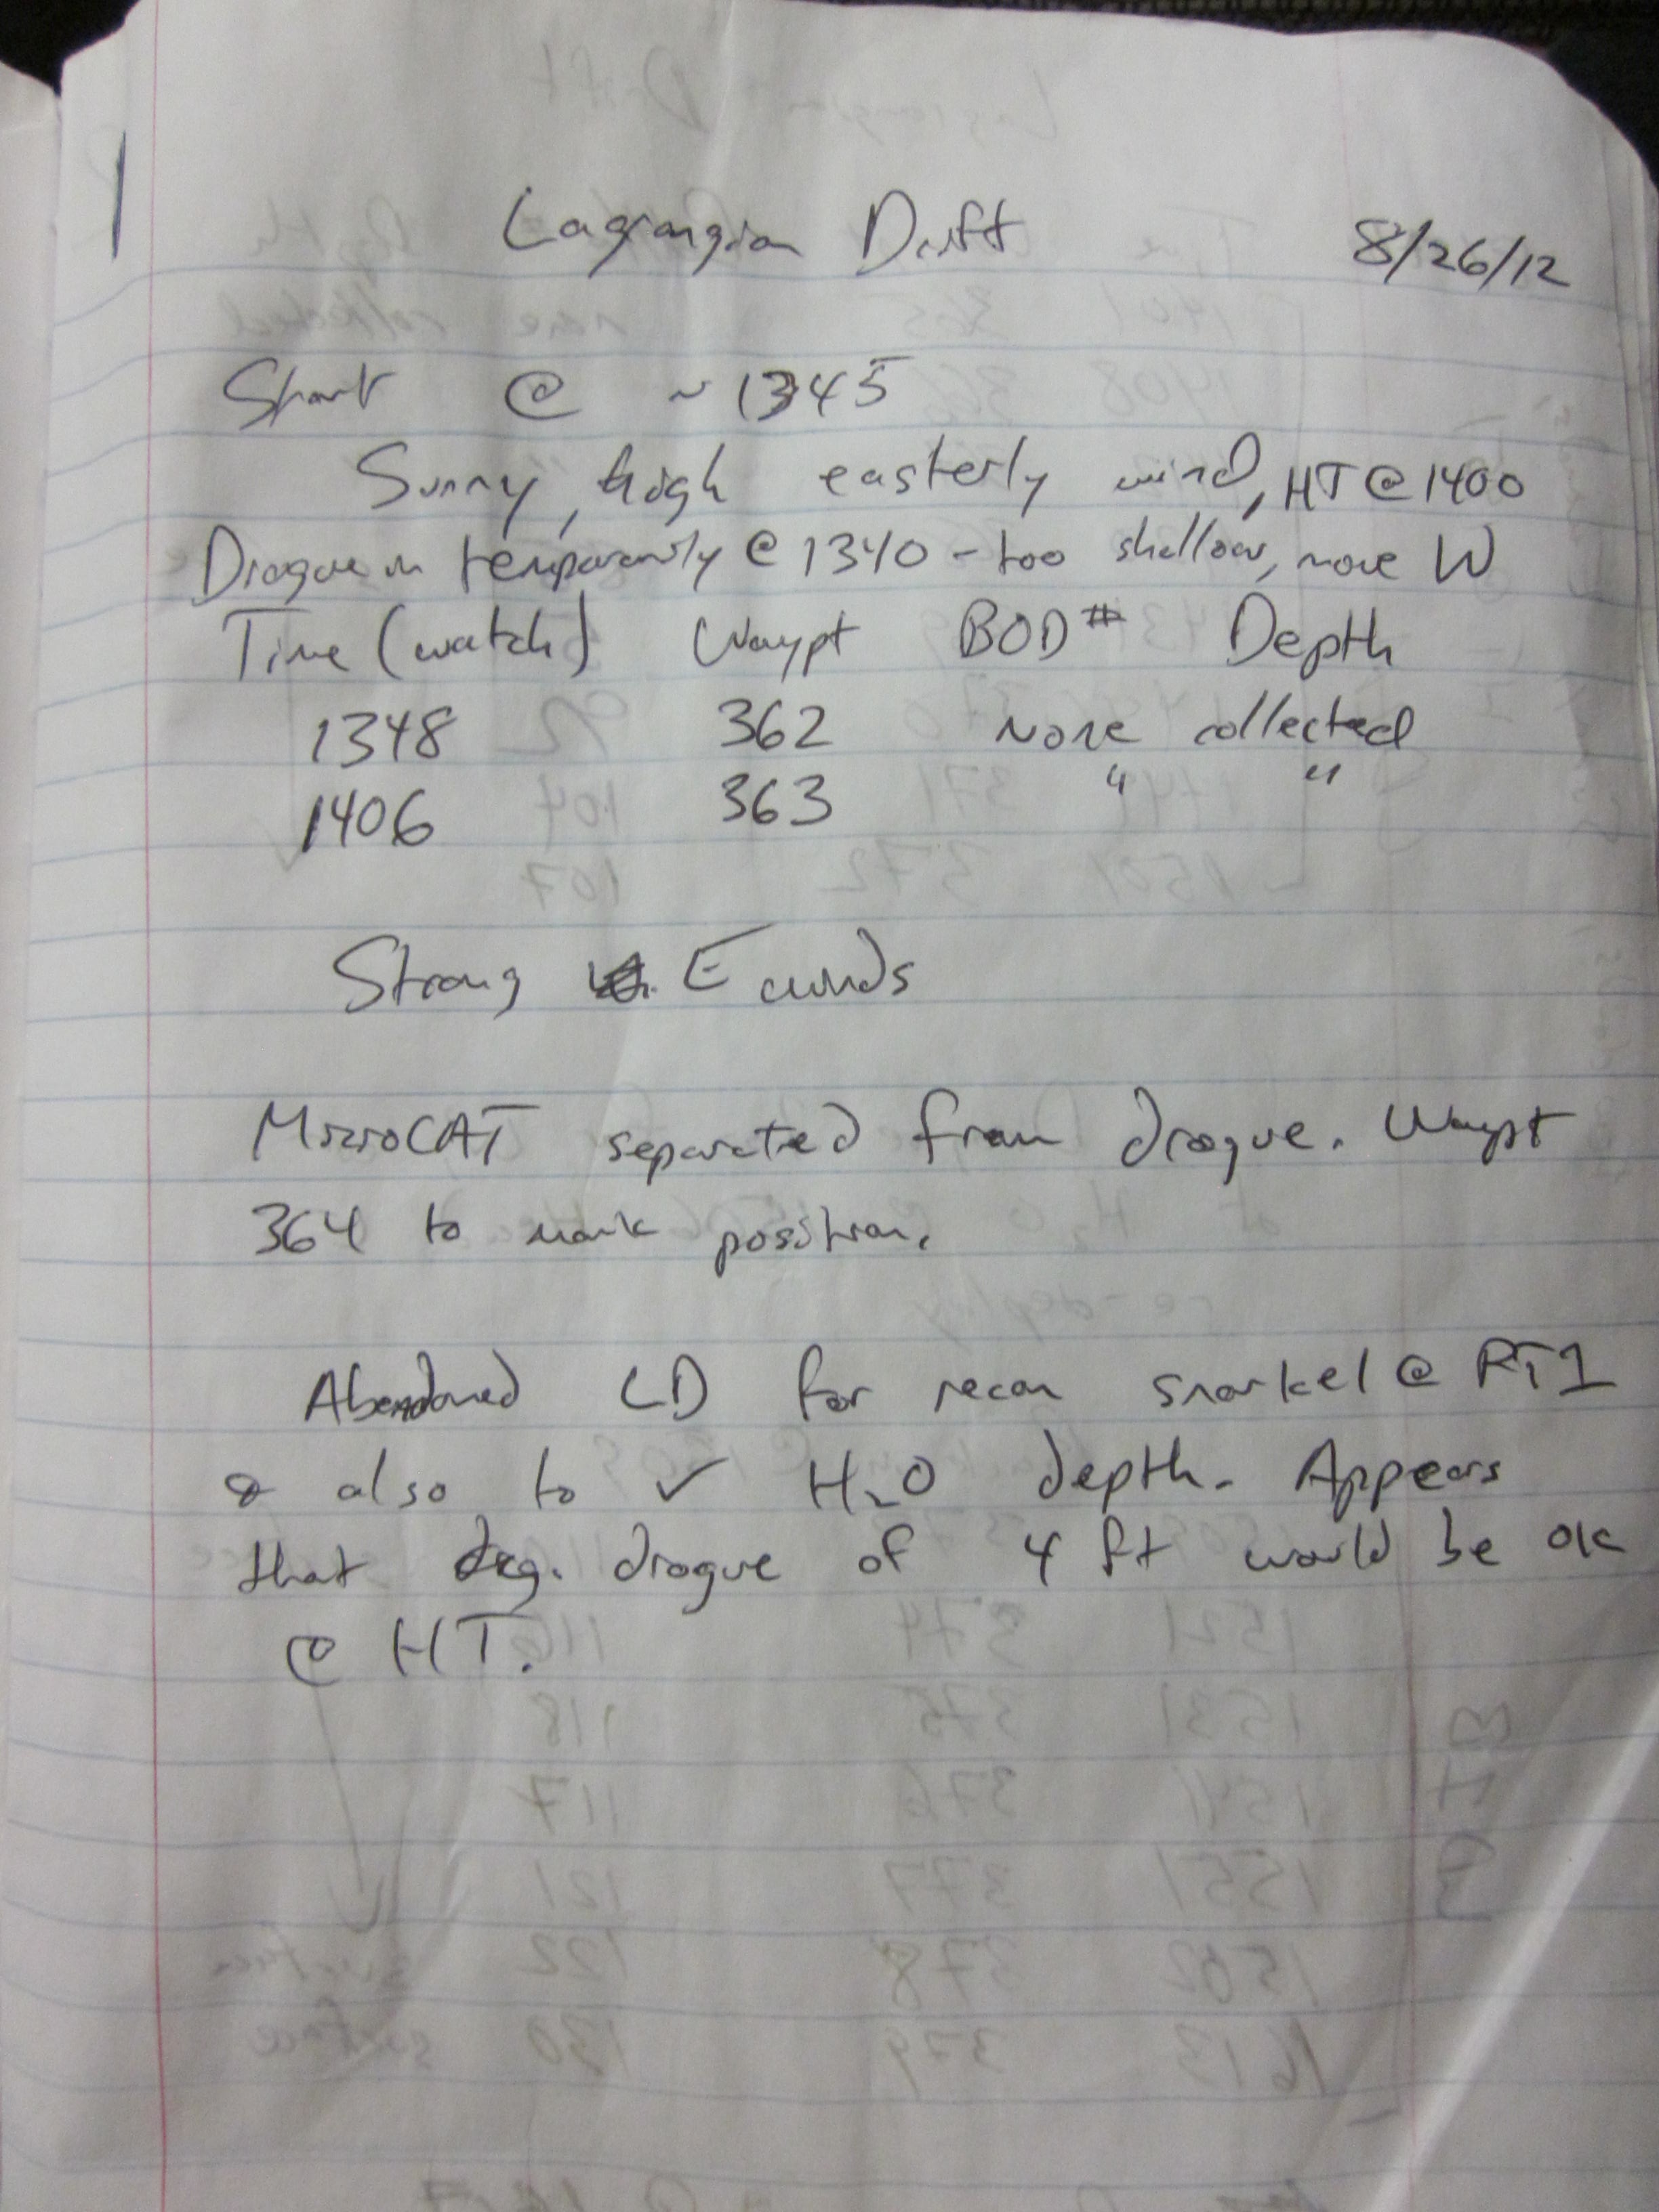 Lagrangian Drift 8/26/12
Start @ ~1345
Sunny, high easterly wind, HT @ 1400
Drogue in temporarily @ 1340 - too shallow, move W
Time (watch) Waypt BOD # Depth
1348 362 None collected
1406 363 " "
Strong E winds
MicroCAT separated from drogue. Waypt
364 to mark position.
Abandoned LD for recon snorkel @ PT1
& also to ✓ H2O depth. Appears
that drogue of 4 ft would be ok
@ HT.